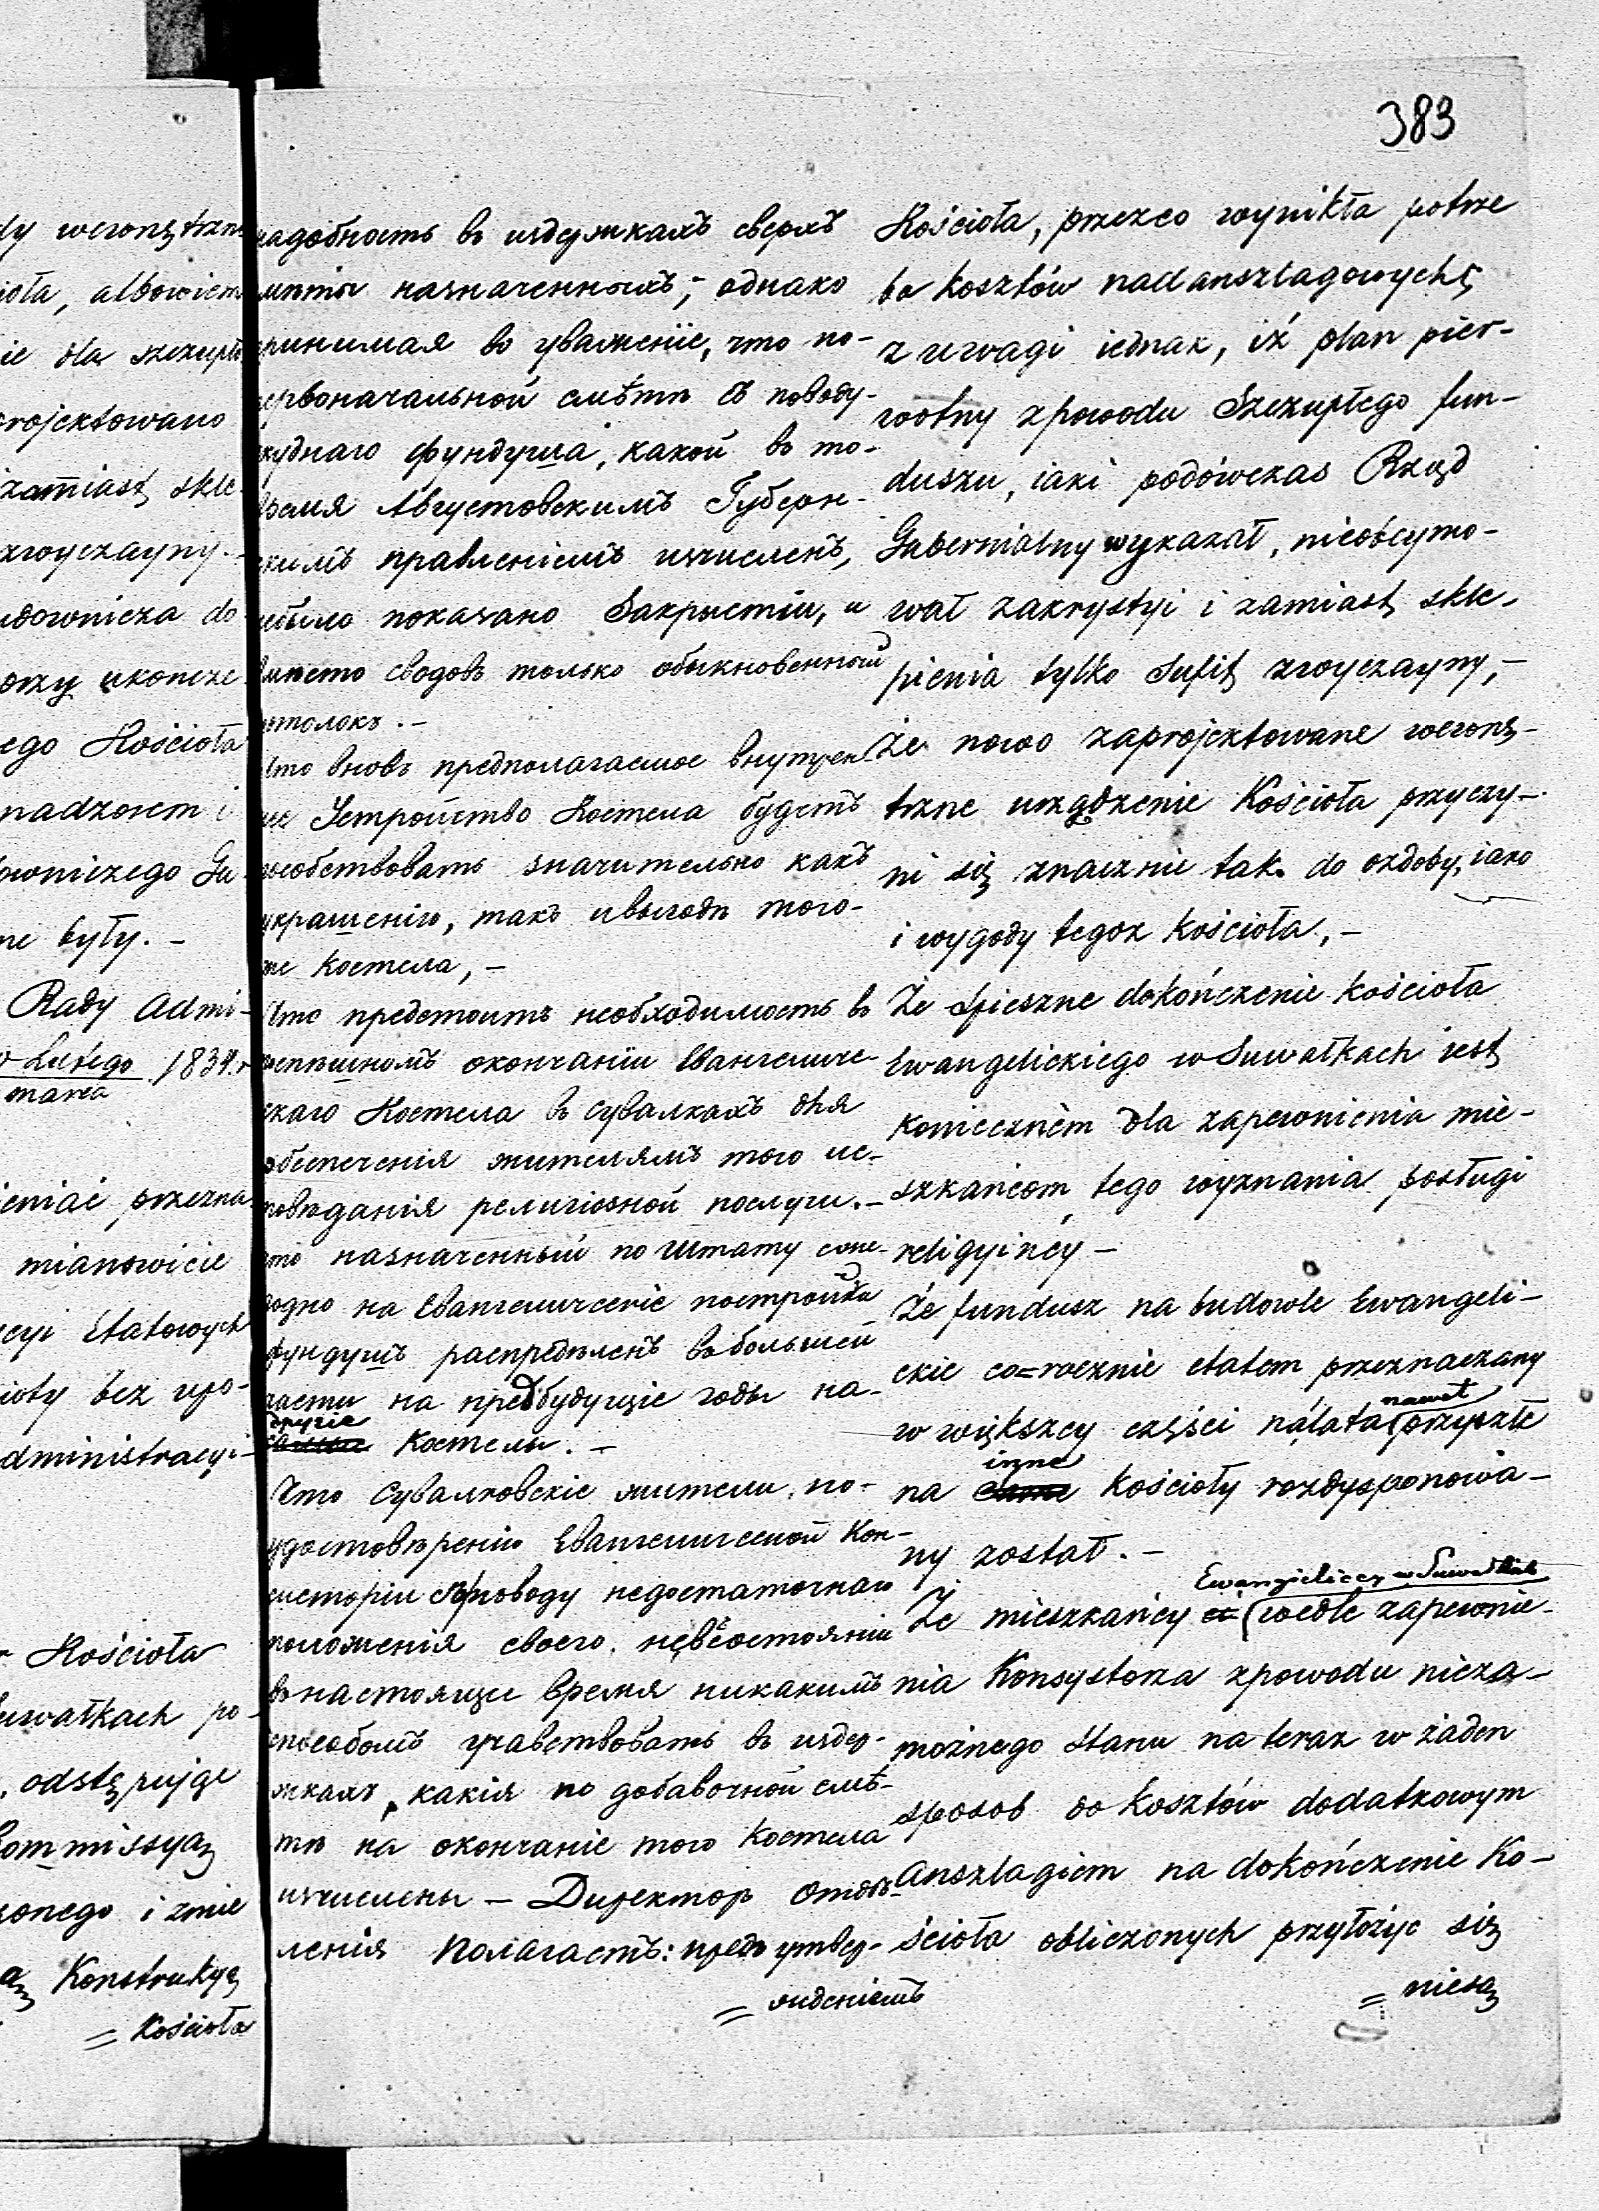 383
dy wewnętrzne
ioła, albowiem
ie dla szczupłe
projektowano
zamiast skle-
zwyczayny.-
udownicza do
przy ukończe
ego Kościoła
nadzorem i
owniczego Gu
ne były. -
Rady Admi-
Lutego 1834 r
marca
eniać przezna
mianowicie
cyi Etatowych
ioły bez upo-
dministracyi-
Kościoła
uwałkach po-
odstępuje
Kommissyą
zonego i zmie
Konstrukcyą
= Kościoła
надобность въ издержкахъ сверхъ
смѣты назначенныхъ; однако
принимая во уваженіе, что по-
первоначальной смѣтѣ съ поводу-
скуднаго фундуша, какой въ то-
время Августовскимъ Губерн-
скимъ правленіемъ изчисленъ,
небыло показано Закрыстіи, и
вмѣсто сводовъ только обыкновенный
потолокъ. -
Что вновь предполагаемое внутрен-
нее Устройство Костела будетъ
пособствовать значительно какъ
украшенію, такъ и выгодѣ того-
же Костела, -
Что предстоитъ необходимость въ
поспѣшномъ окончаніи Евангеличе-
скаго Костела въ Сувалкахъ для
обеспеченія жителямъ того ис-
повѣданія религіозной послуги. -
что назначенный по Штату еже-
годно на Евангелическіе постройки
фундушъ распредѣленъ въ большей
части на предбудущіе годы на-
другіе
Костелы. -
Что Сувалковскіе жители, по-
удостовѣренію Евангелической Кон-
систоріи съ поводу недостаточнаго
положенія своего, невсостояніи
въ настоящее время никакимъ
способомъ учавствовать въ издер-
жкахъ, какія по добавочной смѣ-
тѣ на окончаніе того Костела
изчислены - Директоръ Отдѣ-
ленія Полагаетъ: предъ утвер-
= жденіемъ
Kościoła, przezco wynikła potrze
ba kosztów nadanszlagowych;
z uwagi iednak, iż plan pier-
wotny z powodu Szczupłego fun-
duszu, iaki podówczas Rząd
Gubernialny wykazał, nieobeymo-
wał zakrystyi i zamiast skle-
pienia tylko Sufit zwyczayny, -
Że nowo zaprojektowane wewnę-
trzne urządzenie Kościoła przyczy-
ni się znacznie tak do ozdoby, iako
i wygody tegoż Kościoła, -
Że spieszne dokończenie kościoła
Ewangelickiego w Suwałkach iest
koniecznèm dla zapewnienia mie-
szkańcom tego wyznania posługi
religyinéy -
Że fundusz na budowle Ewangeli-
ckie co=rocznie etatem przeznaczany
nawet
w większey części na lata przyszłe
inne
na Kościoły rozdysponowa-
ny został. -
Ewangieliccy w Suwałkach
Że mieszkańcy ci wedle zapewnie-
nia Konsystorza z powodu nieza-
możnego Stanu na teraz w żaden
sposób do kosztów dodatkowym
anszlagiem na dokończenie Ko-
ścioła obliczonych przyłożyć się
= niesą